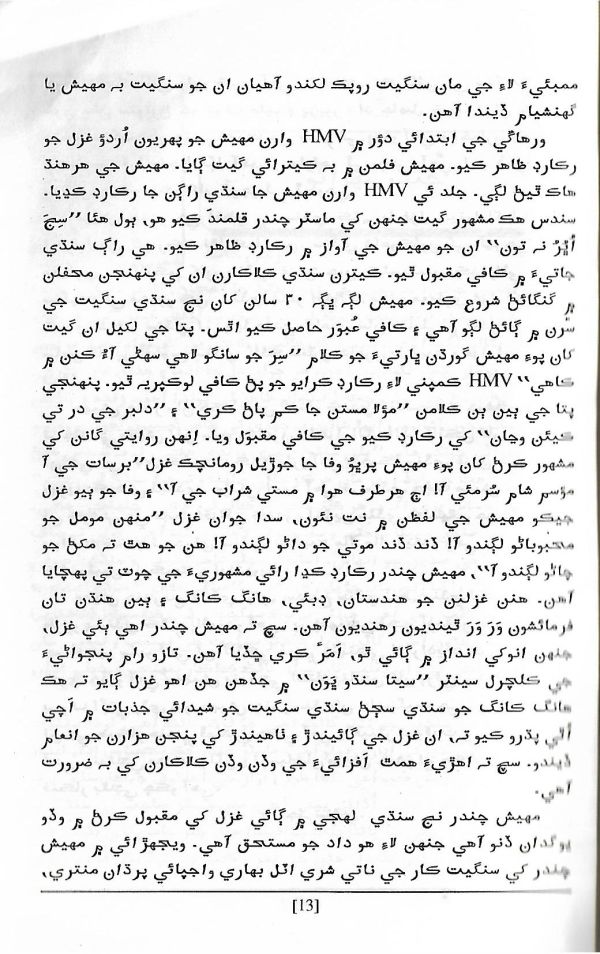 ممبئيءَ لاءِ جي مان سنگيت روپڪ لکندو آهيان ان جو سنگيت بہ مهيش يا
گهنشيام ڏيندا آهن.
ورهاڱي جي ابتدائي دؤر ۾ HMV وارن مهيش جو پهريون اُردوُ غزل جو
رڪارڊ ظاهر ڪيو. مهيش فلمن ۾ بہ ڪيترائي گيت ڳايا. مهيش جي هرهنڌ
هاڪ ٿيڻ لڳي. جلد ئي HMV وارن مهيش جا سنڌي راڳن جا رڪارڊ ڪڍيا.
سندس هڪ مشهور گيت جنهن کي ماسٽر چندر قلمند ڪيو هو، ٻول هئا ”سِجَ
اُڀَرُ نہ تون“ ان جو مهيش جي آواز ۾ رڪارڊ ظاهر ڪيو. هي راڳ سنڌي
جاتيءَ ۾ ڪافي مقبول ٿيو. ڪيترن سنڌي ڪلاڪارن ان کي پنهنجن محفلن
۾ گنگائڻ شروع ڪيو. مهيش لڳہ ڀڳہ ۳۰ سالن کان نج سنڌي سنگيت جي
سُرن ۾ ڳائڻ لڳو آهي ۽ ڪافي عُبوَر حاصل ڪيو اٿس. پتا جي لکيل ان گيت
کان پوءِ مهيش گورڌن ڀارتيءَ جو ڪلام ”سِرَ جو سانگو لاهي سهڻي آءٌ ڪنن ۾
ڪاهي“ HMV ڪمپني لاءِ رڪارڊ ڪرايو جو پڻ ڪافي لوڪپريہ ٿيو. پنهنجي
پتا جي ٻين ٻن ڪلامن ”موُلا مستن جا ڪم پاڻ ڪري“ ۽ ”دلبر جي در تي
ڪيئن وڃان“ کي رڪارڊ ڪيو جي ڪافي مقبوَل ويا. اِنهن روايتي گانن کي
مشهور ڪرڻ کان پوءِ مهيش پرڀوُ وفا جا جوڙيل رومانچڪ غزل ”برسات جي آ
موُسم شام سُرمئي آ! اڄ هرطرف هوا ۾ مستي شراب جي آ“ ۽ وفا جو ٻيو غزل
جيڪو مهيش جي لفظن ۾ نت نئون، سدا جوان غزل ”منهن مومل جو
محبوباڻو لڳندو آ! ڏند ڏند موتي جو داڻو لڳندو آ! هن جو هٿ تہ مکڻ جو
چاڻو لڳندو آ“، مهيش چندر رڪارڊ ڪڍا رائي مشهوريءَ جي چوٽ تي پهچايا
آهن. هنن غزلن جو هندستان، دبئي، هانگ ڪانگ ۽ ٻين هنڌن تان
فرمائشون وَرَ وَرَ ٿينديون رهنديون آهن. سچ تہ مهيش چندر اهي ٻئي غزل،
جنهن انوکي انداز ۾ ڳائي ٿو، اَمَرَ ڪري ڇڏيا آهن. تازو رام پنجواڻيءَ
جي ڪلچرل سينٽر ”سيتا سنڌو ڀَوَن“ ۾ جڏهن هن اهو غزل ڳايو تہ هڪ
هانگ ڪانگ جو سنڌي سڄڻ سنڌي سنگيت جو شيدائي جذبات ۾ اچي
اُٿي پڌرو ڪيو تہ، ان غزل جي ڳائيندڙ ۽ ٺاهيندڙ کي پنجن هزارن جو انعام
ڏيندو. سچ تہ اهڙيءَ همت افزائيءَ جي وڏن وڏن ڪلاڪارن کي بہ ضرورت
آهي.
مهيش چندر نج سنڌي لهجي ۾ ڳائي غزل کي مقبول ڪرڻ ۾ وڏو
يوگدان ڏنو آهي جنهن لاءِ هو داد جو مستحق آهي. ويجهڙائي ۾ مهيش
چندر کي سنگيت ڪار جي ناتي شري اٽل بهاري واجپائي پرڌان منتري،
[13]